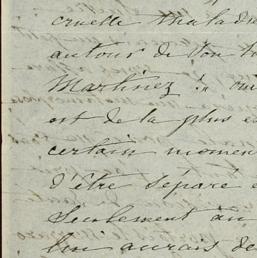 cruelle maladie
autour de ton
Martinez
est de la plus
certain momen
d'être séparé
Seulement au
lui aurais de